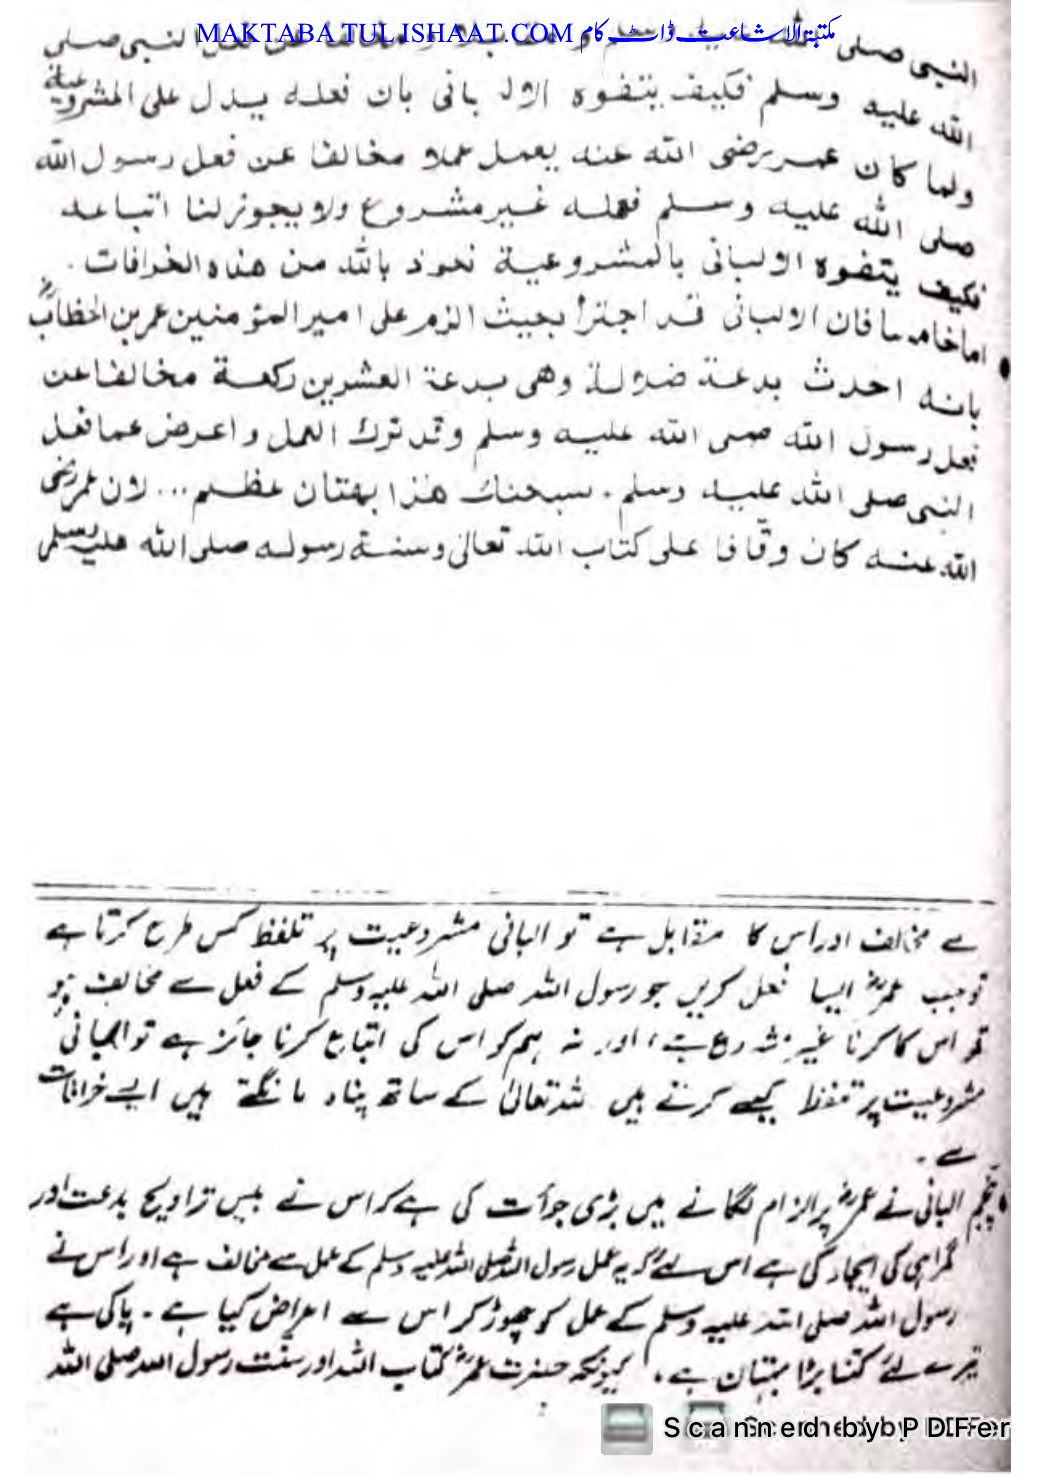 MAKTABA TUL ISHAAT.COM مکتبۃ الاشاعت ڈاٹ کام
النبی صلی النبی صلی
الله علیه وسلم فکیف یتفوه الالبانی بان فعله یدل علی المشروعیة
ولما کان عمر رضی الله عنه یعمل عملا مخالفا عن فعل رسول الله
صلی الله علیه وسلم فعمله غیر مشروع ولا یجوز لنا اتباعه
فکیف یتفوه الالبانی بالمشروعیة نعوذ بالله من هذه الخرافات.
• اما خامسا فان الالبانی قد اجترأ بحیث الزم علی امیر المؤمنین عمر بن الخطابؓ
بانه احدث بدعة ضلالة وهی بدعة العشرین رکعة مخالفا عن
فعل رسول الله صلی الله علیه وسلم وقد ترك العمل واعرض عما فعل
النبی صلی الله علیه وسلم. سبحنك هذا بهتان عظیم... لان عمر رضی
الله عنه کان وقافا علی کتاب الله تعالی وسنة رسوله صلی الله علیه وسلم
سے مخالف اور اس کا مقابل ہے تو البانی مشروعیت پر تلفظ کس طرح کرتا ہے
تو جب عمرؓ ایسا فعل کریں جو رسول اللہ صلی اللہ علیہ وسلم کے فعل سے مخالف ہو
تو اس کا کرنا غیر مشروع ہے، اور نہ ہم کو اس کی اتباع کرنا جائز ہے تو البانی
مشروعیت پر تلفظ کیسے کرتے ہیں اللہ تعالیٰ کے ساتھ پناہ مانگتے ہیں ایسے خرافات
سے۔
• پنجم البانی نے عمرؓ پر الزام لگانے میں بڑی جرأت کی ہے کہ اس نے بیس تراویح بدعت اور
گمراہی کی ایجاد کی ہے اس لئے کہ یہ عمل رسول اللہ صلی اللہ علیہ وسلم کے عمل سے مخالف ہے اور اس نے
رسول اللہ صلی اللہ علیہ وسلم کے عمل کو چھوڑ کر اس سے اعراض کیا ہے۔ پاکی ہے
تیرے لئے کتنا بڑا بہتان ہے۔ کیونکہ حضرت عمرؓ کتاب اللہ اور سنت رسول اللہ صلی اللہ
Scanned by PDFer